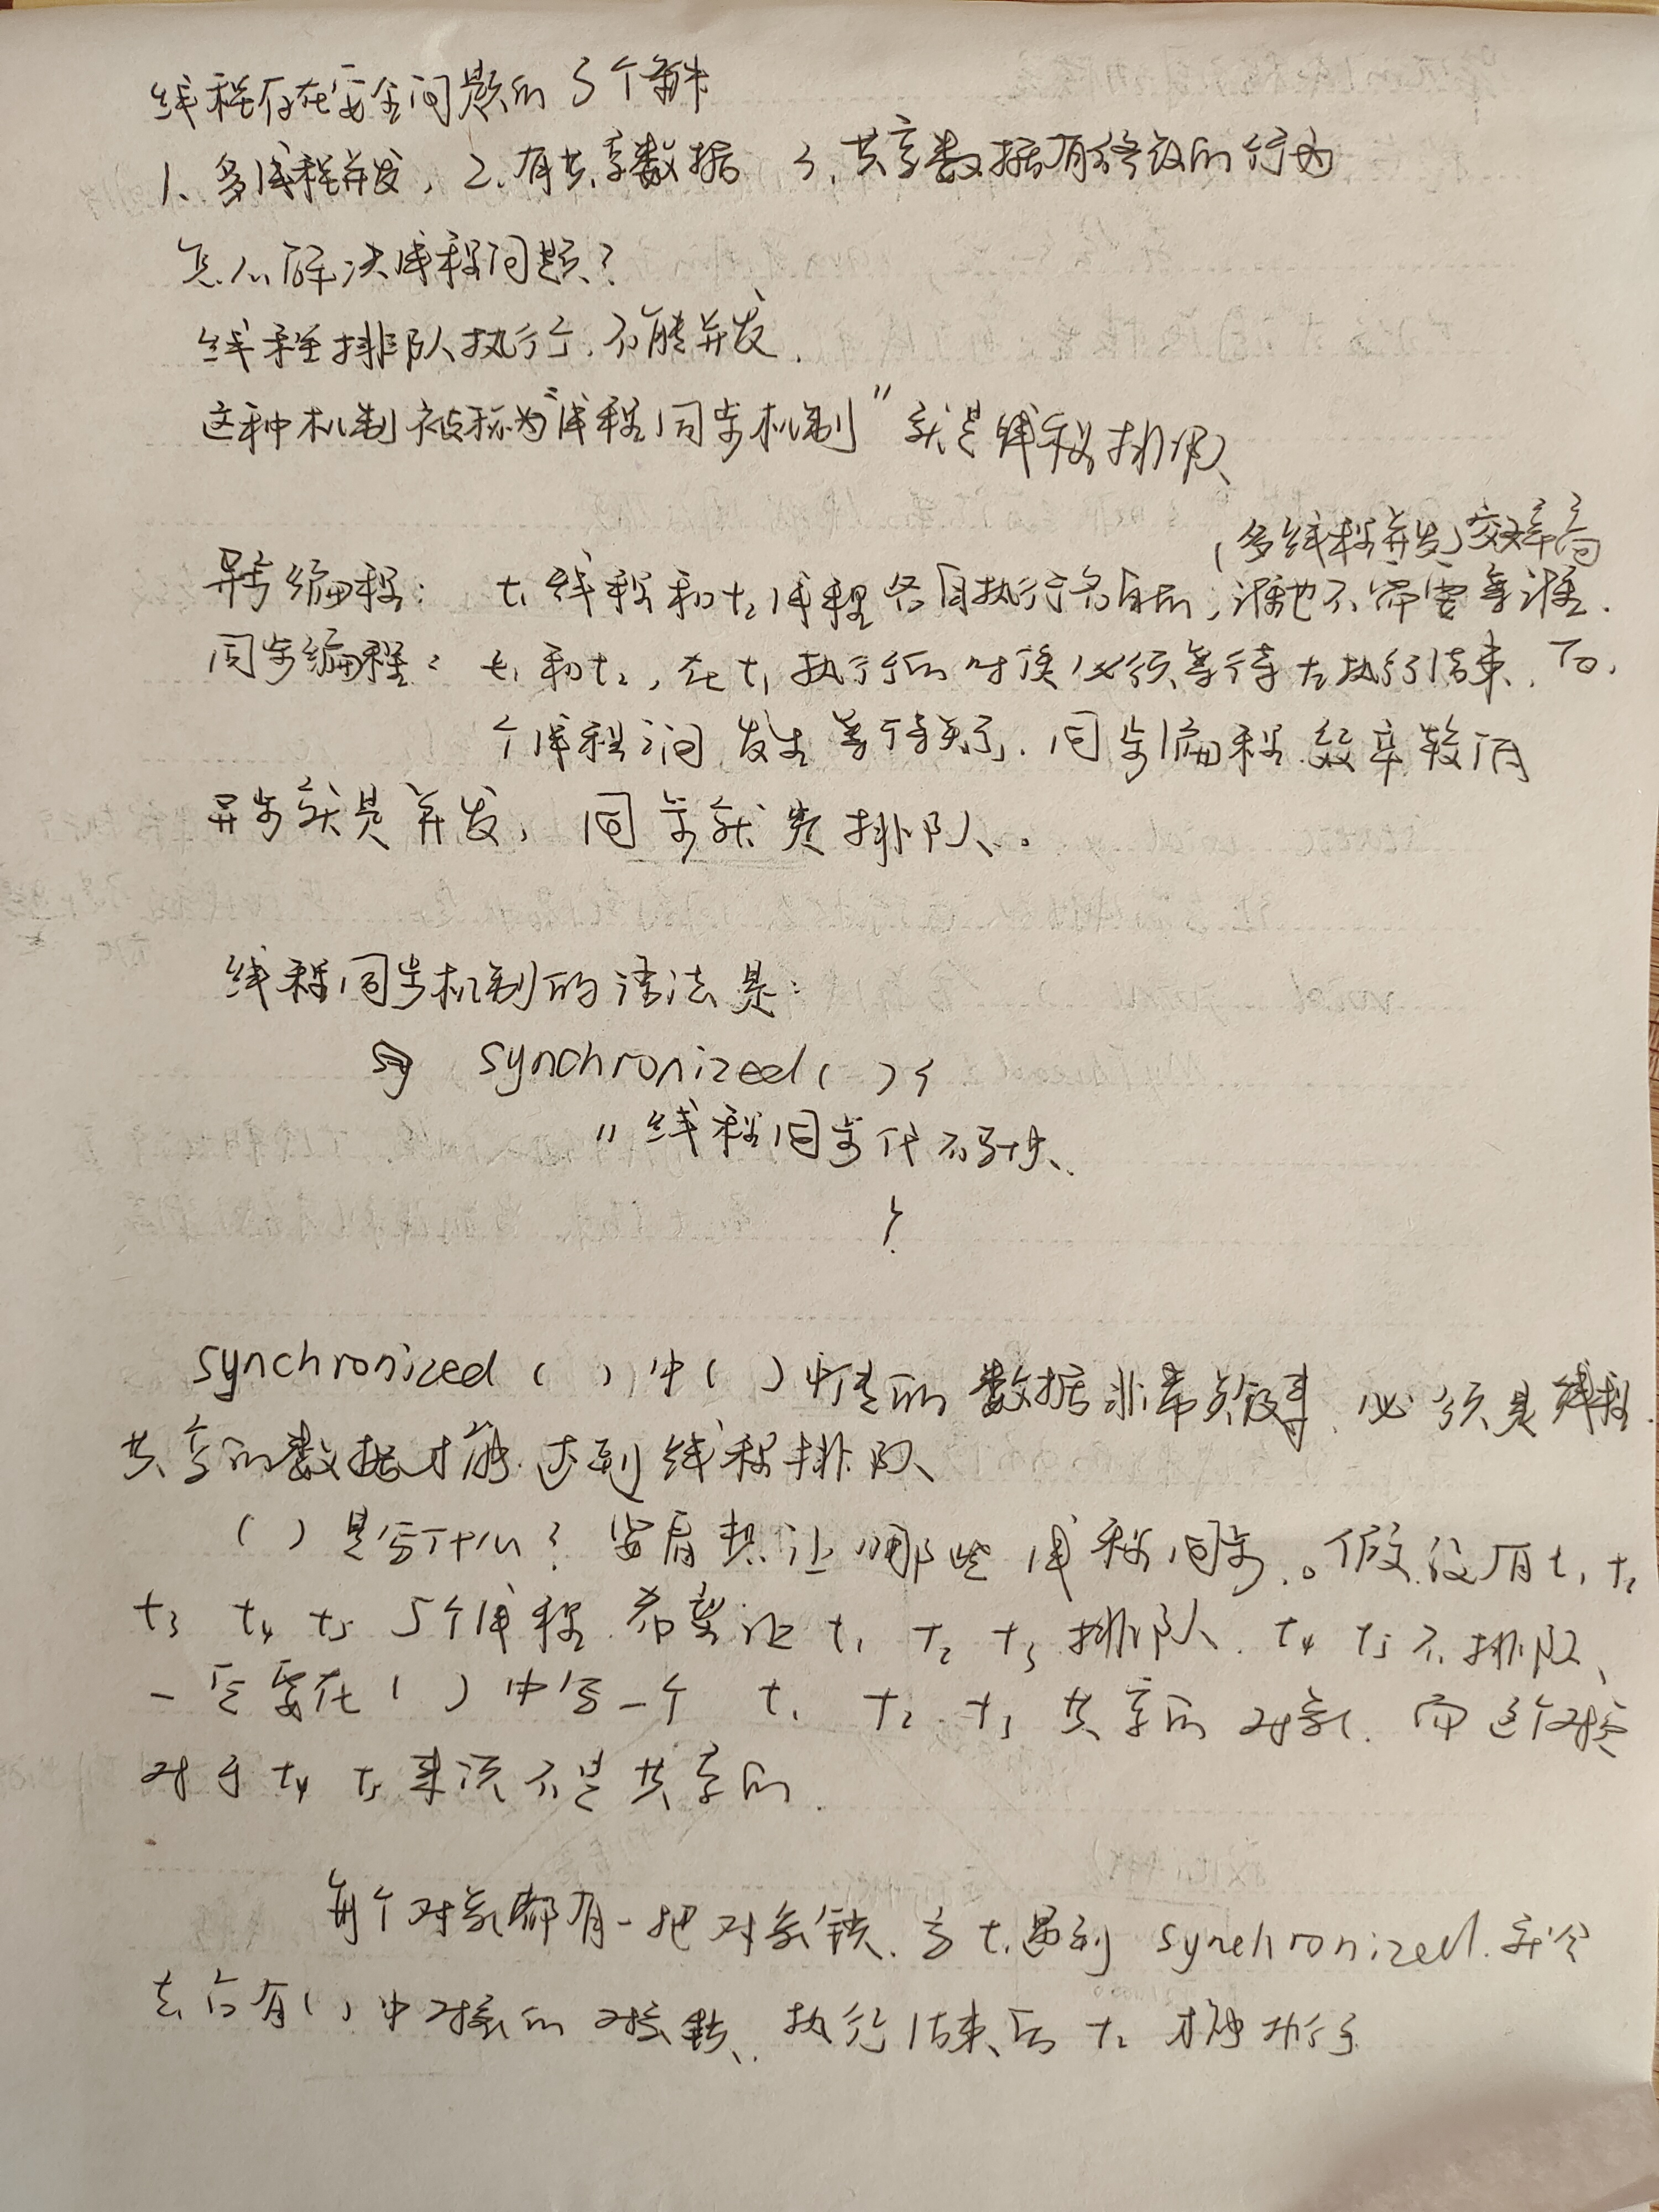 线程存在安全问题的3个条件
1、多线程并发, 2.有共享数据 3.共享数据有修改的行为
怎么解决线程问题?
线程排队执行.不能并发.
这种机制被称为“线程同步机制” 就是线程排队
(多线程并发)效率高
异步编程: t1线程和t2线程各自执行各自的,谁也不需要等谁.
同步编程: t1和t2,在t1执行的时候必须等待t2执行结束.
个线程之间发生等待关系.同步编程.效率较
异步就是并发, 同步就是排队。
线程同步机制的语法是:
synchronized( ){
// 线程同步代码块.
}
synchronized ( ) 中( )中传的数据非常关键.必须是线程
共享的数据才能达到线程排队
( ) 是写什么? 要看想让哪些线程同步.。假设有t1 t2
t3 t4 t5 5个线程.希望让 t1 t2 t3 排队. t4 t5 不排队、
一定要在( )中写一个 t1 t2 t3 共享的对象. 而这个对象
对于t4 t5来说不是共享的.
每个对象都有一把对象锁.当t1遇到 synchronized.就会
去占有( )中对象的对象锁.执行结束后 t2 才能执行